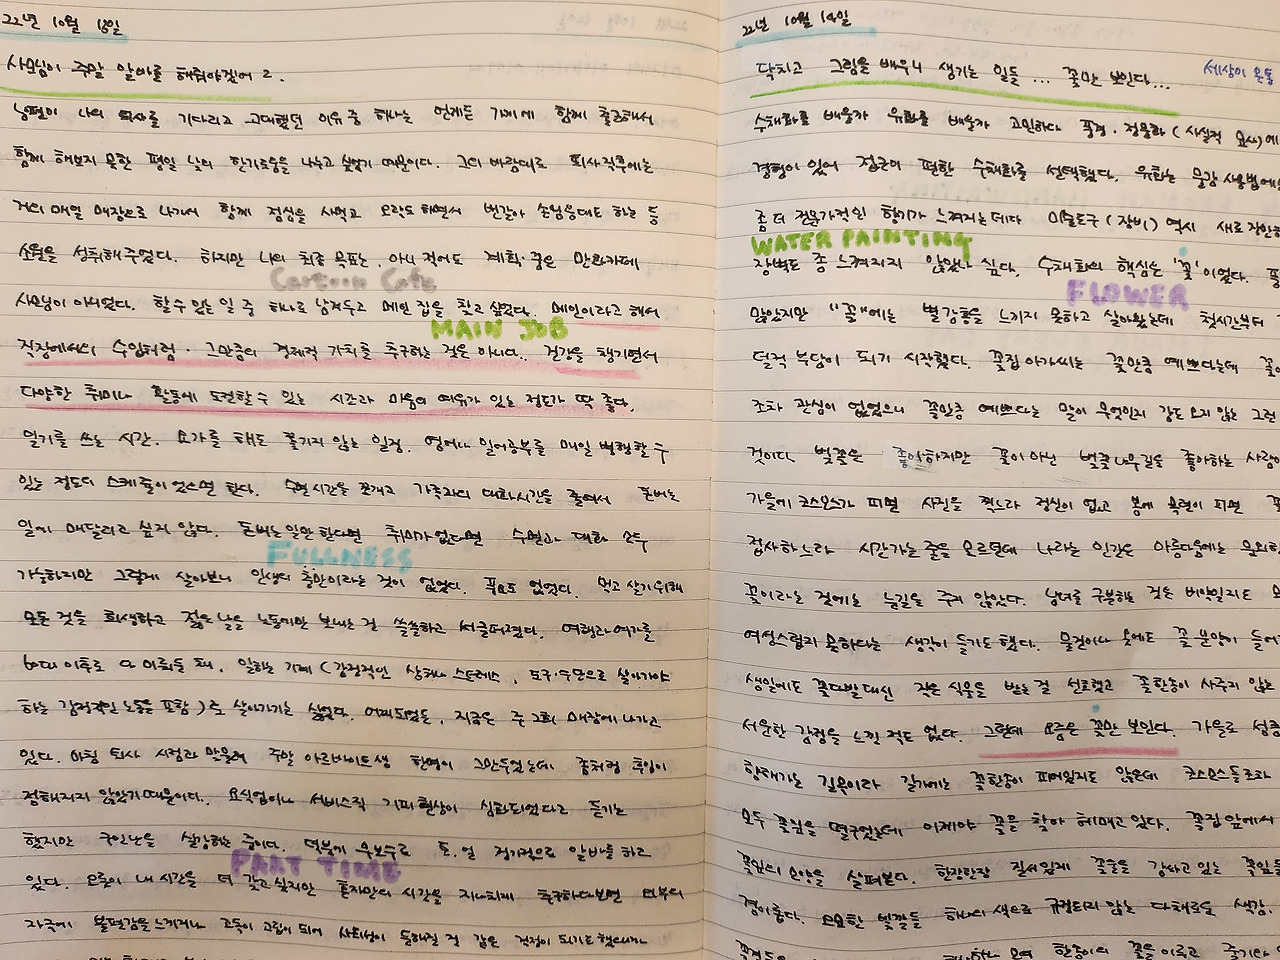 22년 10월 13일
사모님이 주말 알바를 해줘야겠어요.
남편이 나의 퇴사를 기다리고 고대했던 이유 중 하나는 언제든 가게에 함께 출근해서
함께 해보지 못한 평일 낮의 한가로움을 나누고 싶었기 때문이다. 그의 바람대로 퇴사 직후에는
거의 매일 매장으로 나가서 함께 점심을 사먹고 오락도 하면서 번갈아 손님응대도 하는 등
소원을 성취해주었다. 하지만 나의 최종 목표는, 아니 적어도 계획·꿈은 만화카페
Cartoon Cafe
사모님이 아니었다. 할 수 있는 일 중 하나로 남겨두고 메인 잡을 찾고 싶었다. 메인이라고 해서
MAIN JOB
직장에서의 수입처럼. 그만큼의 경제적 가치를 추구하는 것은 아니다. 건강을 챙기면서
다양한 취미나 활동에 도전할 수 있는 시간과 마음의 여유가 있는 정도가 딱 좋다.
일기를 쓰는 시간. 요가를 해도 쫓기지 않는 일정. 영어나 일어공부를 매일 병행할 수
있는 정도의 스케줄이었으면 한다. 수면시간을 쪼개고 가족과의 대화시간을 줄여서 돈버는
일에 매달리고 싶지 않다. 돈버는 일만 한다면 취미가 없다면 수면과 대화 모두
FULLNESS
가능하지만 그렇게 살아보니 인생의 충만이라는 것이 없었다. 폭도 없었다. 먹고 살기위해
모든 것을 희생하고 젊은 날을 노동에만 보내는 건 쓸쓸하고 서글퍼졌다. 여행과 여가를
60대 이후로 다 미뤄둔 채, 일하는 기계 (감정적인 상처나 스트레스, 도구·수단으로 살아가야
하는 감정적인 노동을 포함)로 살아가기는 싫었다. 어찌되었든, 지금은 주 2회 매장에 나가고
있다. 마침 퇴사 시점과 맞물려 주말 아르바이트생 한명이 그만두었는데 좀처럼 후임이
정해지지 않았기 때문이다. 요식업이나 서비스직 기피현상이 심화되었다고 듣기는
했지만 구인난을 실감하는 중이다. 덕분에 무보수로 토.일 정기적으로 알바를 하고
PART TIME
있다. 오롯이 내 시간을 더 갖고 싶지만 혼자만의 시간을 지나치게 추구하다보면 외부의
자극에 불편감을 느끼거나 고독이 고립이 되어 사회성이 둔해질 것 같은 걱정이 되기도 했으니까
22년 10월 14일
닥치고 그림을 배우니 생기는 일들 ... 꽃만 보인다...
세상이 온통
수채화를 배울까 유화를 배울까 고민하다 풍경·정물화 (사실적 묘사)에
경험이 있어 접근이 편한 수채화를 선택했다. 유화는 물감 사용법에
좀 더 전문가적인 향기가 느껴지는데다 미술도구 (장비) 역시 새로 장만
WATER PAINTING
장벽도 좀 느껴지지 않았나 싶다. 수채화의 핵심은 '꽃'이었다. 풍
FLOWER
많았지만 "꽃"에는 별 감흥을 느끼지 못하고 살아왔는데 첫시간부터
덜컥 부담이 되기 시작했다. 꽃집 아가씨는 꽃만큼 예쁘다는데 꽃
조차 관심이 없었으니 꽃만큼 예쁘다는 말이 무엇인지 감도 오지 않는 그런
것이다. 벚꽃은 좋아하지만 꽃이 아닌 벚꽃나무길을 좋아하는 사람이
가을에 코스모스가 피면 사진을 찍느라 정신이 없고 봄에 목련이 피면
접사하느라 시간가는 줄을 모르던데 나라는 인간은 아름다움에는
꽃이라는 것에는 눈길을 주지 않았다. 남녀를 구분하는 것은 비약일지도
여성스럽지 못하다는 생각이 들기도 했다. 물건이나 옷에도 꽃 분양이 들어
생일에도 꽃다발 대신 작은 식물을 받는 걸 선호했고 꽃 한송이 사주지 않는
서운한 감정을 느낀 적도 없다. 그런데 요즘은 꽃만 보인다. 가을로 성큼
향해가는 길목이라 길가에는 꽃한송이 피어있지도 않은데 코스모스들조차
모두 꽃잎을 떨구었는데 이제야 꽃을 찾아 헤매고 있다. 꽃집 앞에서
꽃잎의 모양을 살펴본다. 한장한장 질서있게 꽃술을 감싸고 있는 꽃잎들
경이롭다. 오묘한 빛깔들 하나의 색으로 규정되지 않는 다채로운 색감.
하나하나 모여 한송이의 꽃을 이루고 줄기와